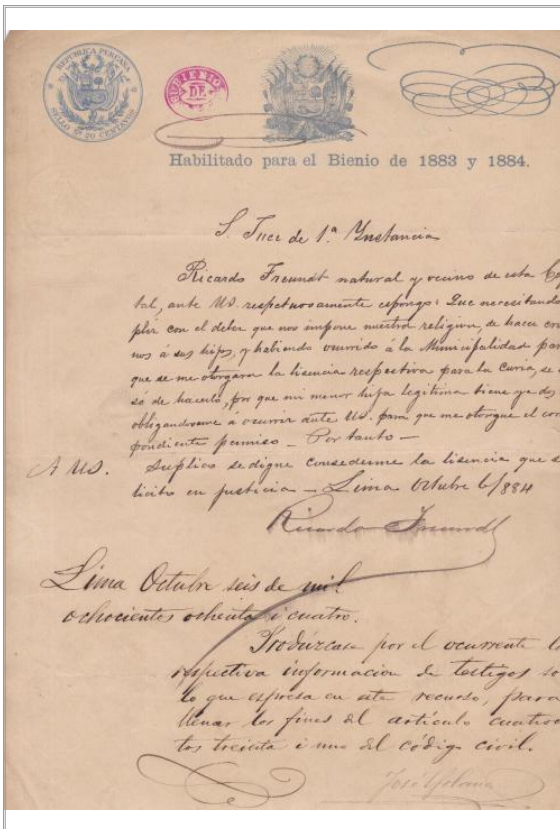 REPUBLICA PERUANA
SELLO 6º 20 CENTAVOS
BIENIO
DE
Habilitado para el Bienio de 1883 y 1884.
S. Juez de 1.ª Ynstancia
Ricardo Freundt natural y vecino de esta Ca
tal, ante US. respetuosamente espongo: Que necesitando
plir con el deber que nos impone nuestra religion, de hacer cris
nos á sus hijos, y habiendo ocurrido á la Municipalidad para
que se me otorgara la lisencia respectiva para la Curia, se
só de hacerlo, por que mi menor hija legitima tiene ya dos
obligandome á ocurrir ante US. para que me otorgue el cor
pondiente permiso – Por tanto –
A US. Suplico se digne consederme la lisencia que so
licito en justicia – Lima Octubre 6/884
Ricardo Freundt
Lima Octubre seis de mil
ochocientos ochenta i cuatro.
Prodúzcase por el ocurrente la
respectiva informacion de testigos so
lo que espresa en este recurso, para
llenar los fines del artículo cuatroc
tos treinta i uno del código civil.
José